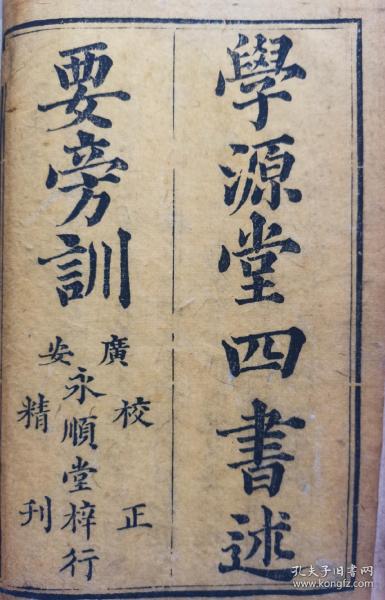 學源堂四書述
要旁訓
廣安
永順堂梓行
校正
精刊
孔夫子旧书网